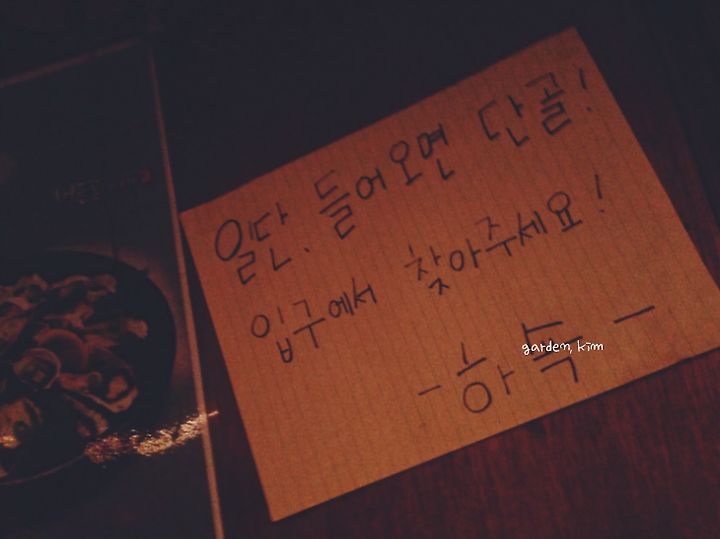 일단, 들어오면 단골!
입구에서 찾아주세요!
garden, kim